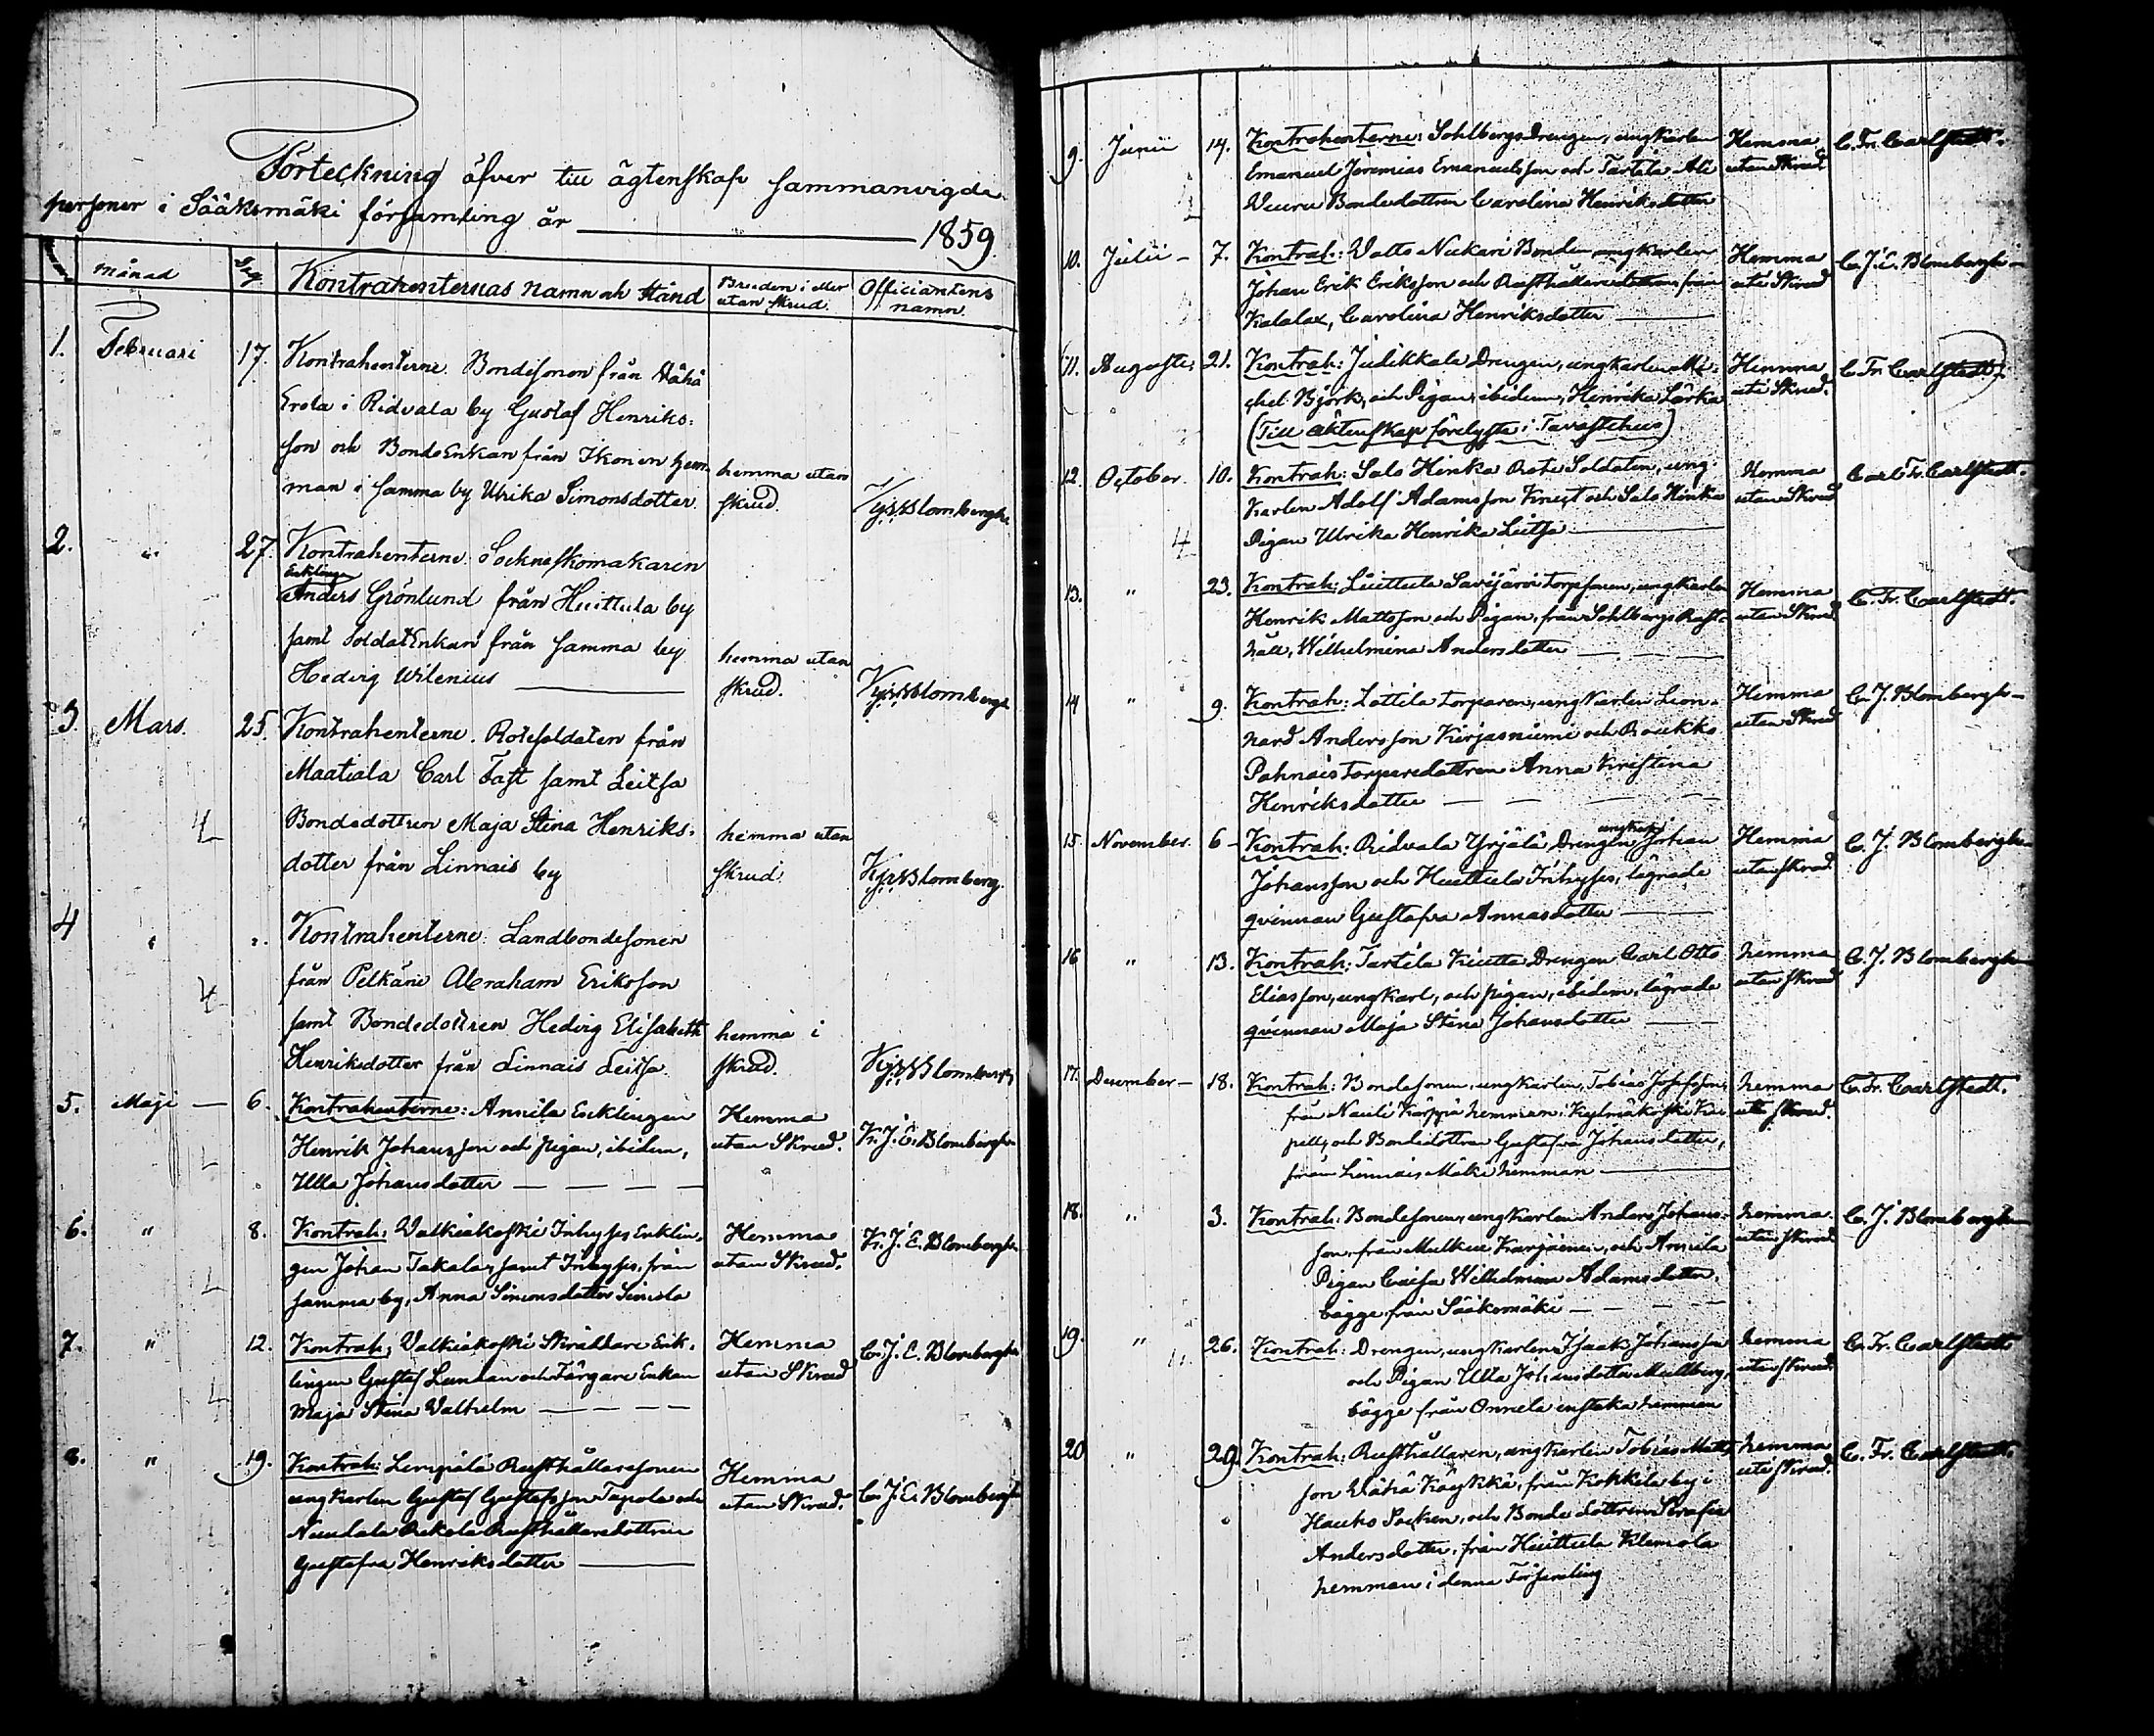 Förteckning öfver till ägtenskap sammanvigda
personer i Sääksmäki församling år 1859
månad Dag Kontrahenternas namn och stånd Bruden i eller utan skrud. Officiantens namn.
1. Februari 17. Kontrahenterne. Bondesonen från Wähä
Erola i Ridvala by Gustaf Henriks=
son och BondeEnkan från Ikonen hem= hemma utan
man i samma by Ulrika Simonsdotter. skrud. Blombergh
2. " 27. Kontrahenterne. Sockneskomakaren
Enklingen
Anders Grönlund från Huittula by
samt SoldatEnkan från samma by hemma utan
Hedvig Wilenius skrud. Blombergh
3. Mars. 25. Kontrahenterne. Rotesoldaten från
Maatiala Carl Fast samt Leitsa
Bondedottren Maja Stina Henriks= hemma utan
dotter från Linnais by skrud. Blomberg.
4 " " Kontrahenterne: Landbondesonen
från Pelkäne Abraham Eriksson
samt Bondedottren Hedvig Elisabeth hemma i
Henriksdotter från Linnais Leitsa. skrud. Blombergh
5. Maji 6. Kontrahenterne: Annila Enklingen Hemma
Henrik Johansson och pigan, ibidem, utan Skrud. K. J. E. Blombergh
Ulla Johansdotter
6. " 8. Kontrah: Walkiakoski Inhyses Enklin= Hemma K. J. E. Blombergh
gen Johan Takala, samt Inhyses, från utan Skrud.
samma by, Anna Simonsdotter Simola
7. " 12. Kontrah: Walkiakoski Skräddare Enk= Hemma C. J. E. Blombergh
lingen Gustaf Lunnan och Färgare Enkan utan Skrud
Maja Stina Walhelm
8. " 19. Kontrah: Lempiälä Rusthållaresonen Hemma
ungkarlen Gustaf Gustafsson Tapola och utan Skrud. C. J. E. Blombergh
Rusthållaredottren
Gustafva Henriksdotter
9. Junii 14. Kontrahenterne: Sohlbergs Drengen, ungkarlen Hemma C. Fr. Carlstedt.
Emanuel Jeremias Emanuelsson och Tarttila Ali utan Skrud
Wuuru Bondedottren Carolina Henriksdotter
10. Julii 7. Kontrah: Wolto Nickari Bonden ungkarlen Hemma C. J. E. Blombergh
Johan Erik Eriksson och Rusthållaredottren från uti Skrud
Kalalax, Carolina Henriksdotter
11. Augusti 21. Kontrah: Judikkala Drengen, ungkarlen Mi= Hemma C Fr. Carlstedt.
chel Björk, och Pigan, ibidem, Henrika Lärka uti Skrud.
(Till äktenskap förelyste i Tavastehus)
12. October. 10. Kontrah: Salo Hinka Rote Soldaten, ung= Hemma Carl Fr. Carlstedt.
Karlen Adolf Adamsson Knect och Salo Hinka utan Skrud
Pigan Ulrika Henrika Leitsa
13. " 23. Kontrah: Huittula Savijärvi torpsonen, ungkarlen Hemma C. Fr. Carlstedt.
Henrik Mattsson och Pigan, från Sohlbergs Rust= utan Skrud
håll, Wilhelmina Andersdotter
14 " 9. Kontrah: Lottila torparen, ungkarlen Leon= Hemma C. J. Blombergh
hard Andersson Kirjasniemi och Roukko utan Skrud
Pahnais torparedottren Anna Kristina
Henriksdotter
15. November. 6 Kontrah: Ridvala Yrjälä Drengen ungkarl Johan Hemma C. J. Blombergh
Johansson och Huittula Inhyses, lägrade utan skrud
qvinnan Gustafva Annasdotter
16 " 13. Kontrah: Tarttila Kuitta Drengen Carl Otto hemma C. J. Blombergh
Eliasson, ungkarl, och pigan, ibidem, lägrade utan skrud
qvinnan Maja Stina Johansdotter
17. December 18. Kontrah: Bondesonen, ungkarlen, Tobias Josefsson, hemma C. Fr. Carlstedt.
från Nauli Karppi hemman i Kylmäkoski Ka= uti skrud.
pell, och Bondedottren Gustafva Johansdotter,
från Linnais Mäki hemman
18. " 3. Kontrah: Bondesonen, ungkarlen Anders Johans= hemma C. J. Blombergh
son, från Mulkue, och Annila utan skrud
Pigan Caisa Wilhelmina Adamsdotter,
bägge från Sääksmäki
19. " 26. Kontrah: Drengen, ungkarlen Isaak Johansson hemma C. Fr. Carlstedt
och Pigan Ulla Johansdotter Mullberg, utan skrud.
bägge från Onnela enstaka hemman
20 " 29. Kontrah: Rusthållaren, ungkarlen Tobias Matts= hemma C. Fr. Carlstedt.
son Wähä Käykkä, från Kokkila by i uti skrud.
Hauho Socken, och Bonde dottren Serafia
Andersdotter, från Huittula Klemola
hemman i denna Församling